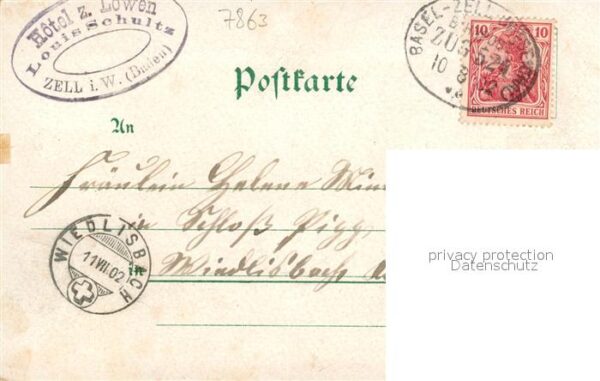 Hôtel z. Löwen
Louis Schultz
ZELL i. W. (Baden)
7863
BASEL-ZELL
ZUG 524
10
10 10
DEUTSCHES REICH
Postkarte
An
Fräulein Helene
in Schloß
in Wiedlisbach
WIEDLISBACH
11 VII. 02
privacy protection
Datenschutz